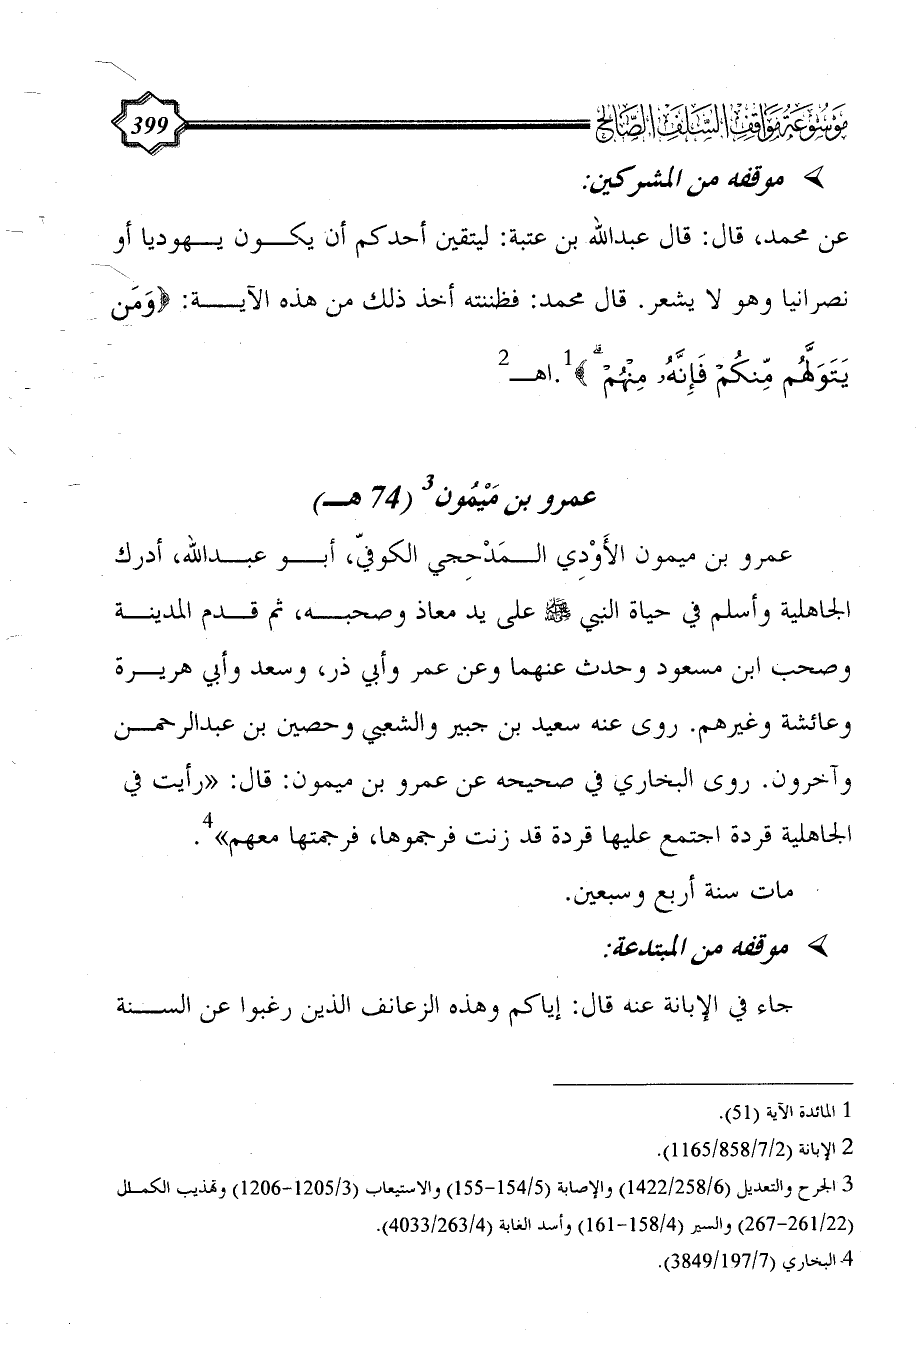 موسوعة مواقف السلف الصالح
399
موقفه من المشركين:
عن محمد، قال: قال عبدالله بن عتبة: ليتقين أحدكم أن يكون يهوديا أو
نصرانيا وهو لا يشعر. قال محمد: فظننته أخذ ذلك من هذه الآية: ﴿وَمَن
يَتَوَلَّهُم مِّنكُمْ فَإِنَّهُۥ مِنْهُمْ ۗ﴾1.اهـ2
عمرو بن مَيْمُون3 (74 هـ)
عمرو بن ميمون الأَوْدي المَذْحِجي الكوفيّ، أبو عبدالله، أدرك
الجاهلية وأسلم في حياة النبي ﷺ على يد معاذ وصحبه، ثم قدم المدينة
وصحب ابن مسعود وحدث عنهما وعن عمر وأبي ذر، وسعد وأبي هريرة
وعائشة وغيرهم. روى عنه سعيد بن جبير والشعبي وحصين بن عبدالرحمن
وآخرون. روى البخاري في صحيحه عن عمرو بن ميمون: قال: «رأيت في
الجاهلية قردة اجتمع عليها قردة قد زنت فرجموها، فرجمتها معهم»4.
مات سنة أربع وسبعين.
موقفه من المبتدعة:
جاء في الإبانة عنه قال: إياكم وهذه الزعانف الذين رغبوا عن السنة
1 المائدة الآية (51).
2 الإبانة (1165/858/7/2).
3 الجرح والتعديل (1422/258/6) والإصابة (154/5-155) والاستيعاب (1205/3-1206) وتهذيب الكمال
(261/22-267) والسير (158/4-161) وأسد الغابة (4033/263/4).
4 البخاري (3849/197/7).